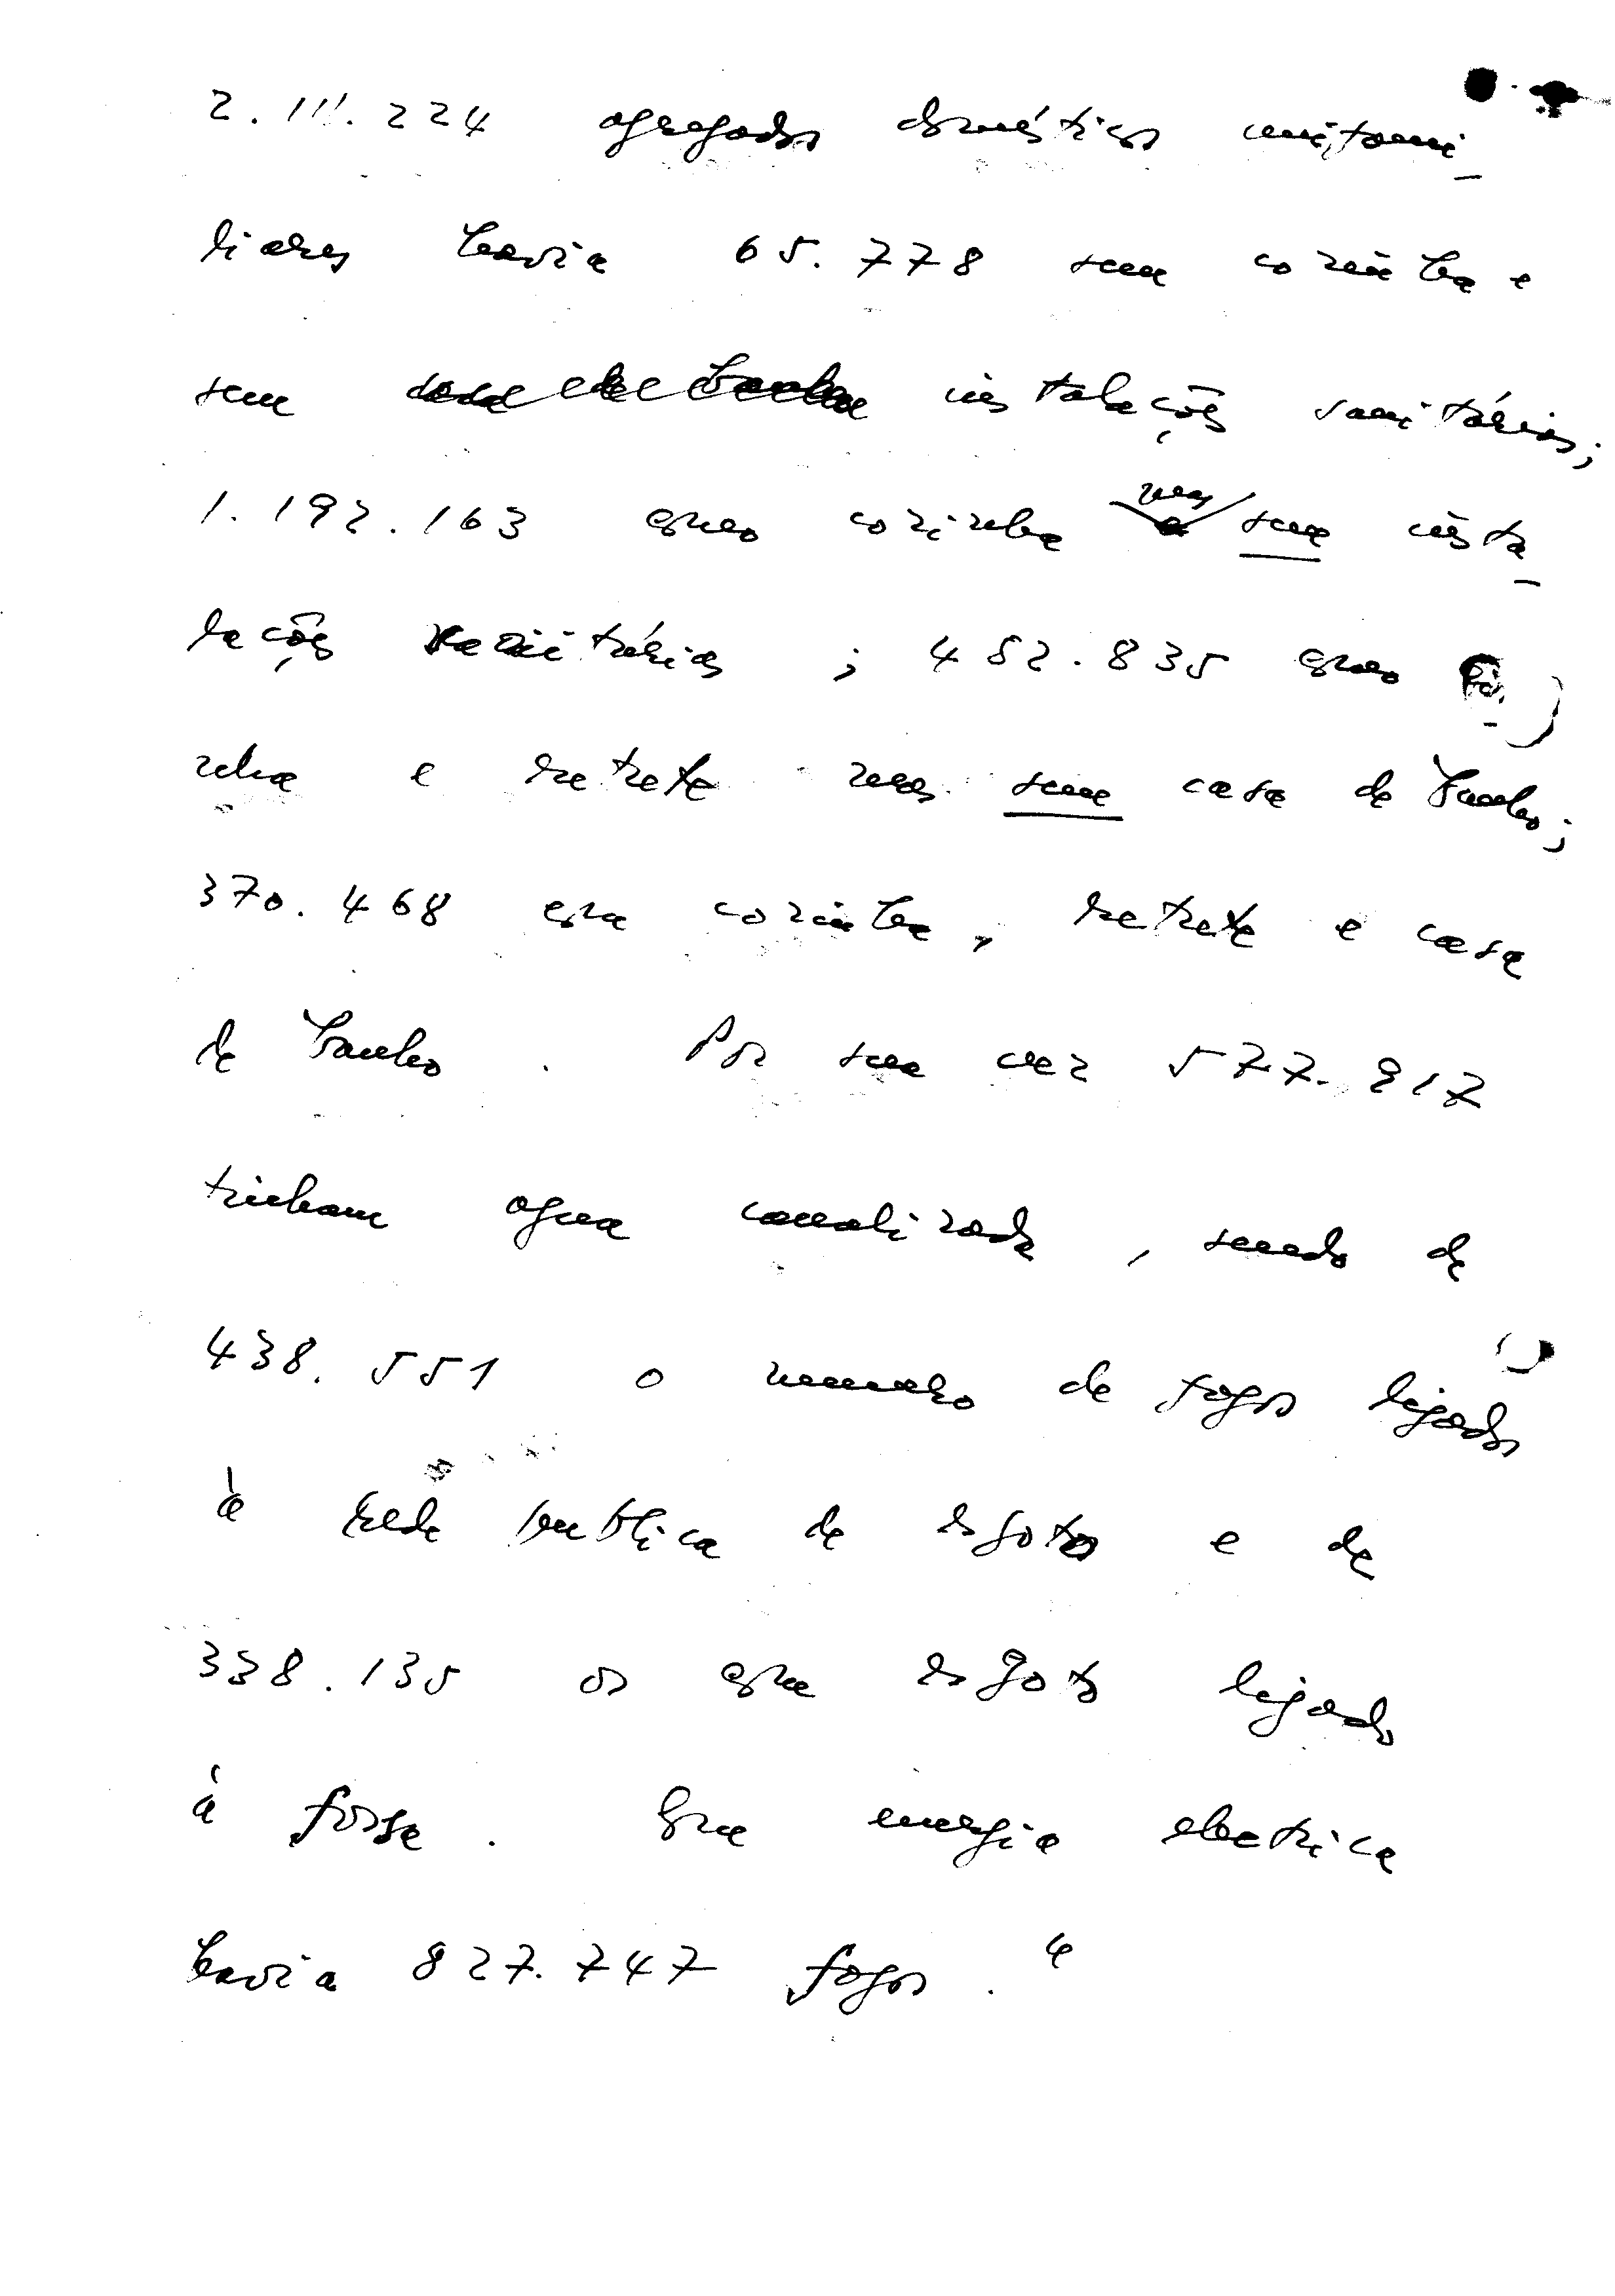 2.111.224 agregados domésticos unifami-
liares havia 65.778 sem cozinha e
sem casa de banho instalações sanitárias;
1.192.163 com cozinha mas sem insta-
lações sanitárias ; 482.835 com co
zinha e retrete mas sem casa de banho;
370.468 com cozinha, retrete e casa
de banho . Por sua vez 577.917
tinham agua canalizada , sendo de
438.551 o numero de fogos ligados
à rede publica de esgotos e de
338.135 os com esgoto ligado
à fossa . Com energia electrica
havia 827.747 fogos . "